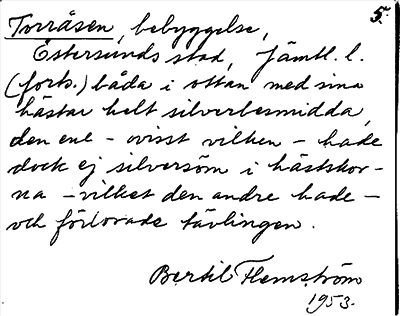 5.
Torråsen, bebyggelse,
Östersunds stad, Jämtl. l.
(forts.) båda i ottan med sina
hästar helt silverbesmidda,
den ene - ovisst vilken - hade
dock ej silversöm i hästskor-
na - vilket den andre hade -
och förlorade tävlingen.
Bertil Flemström
1953.